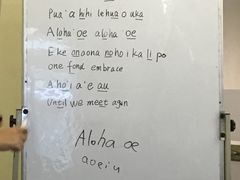 Pua 'a hihi lehua o uka
Aloha 'oe aloha oe
E ke onaona noho i ka li po
one fond embrace
A ho'i a'e au
Until we meet again
Aloha oe
aoeiu